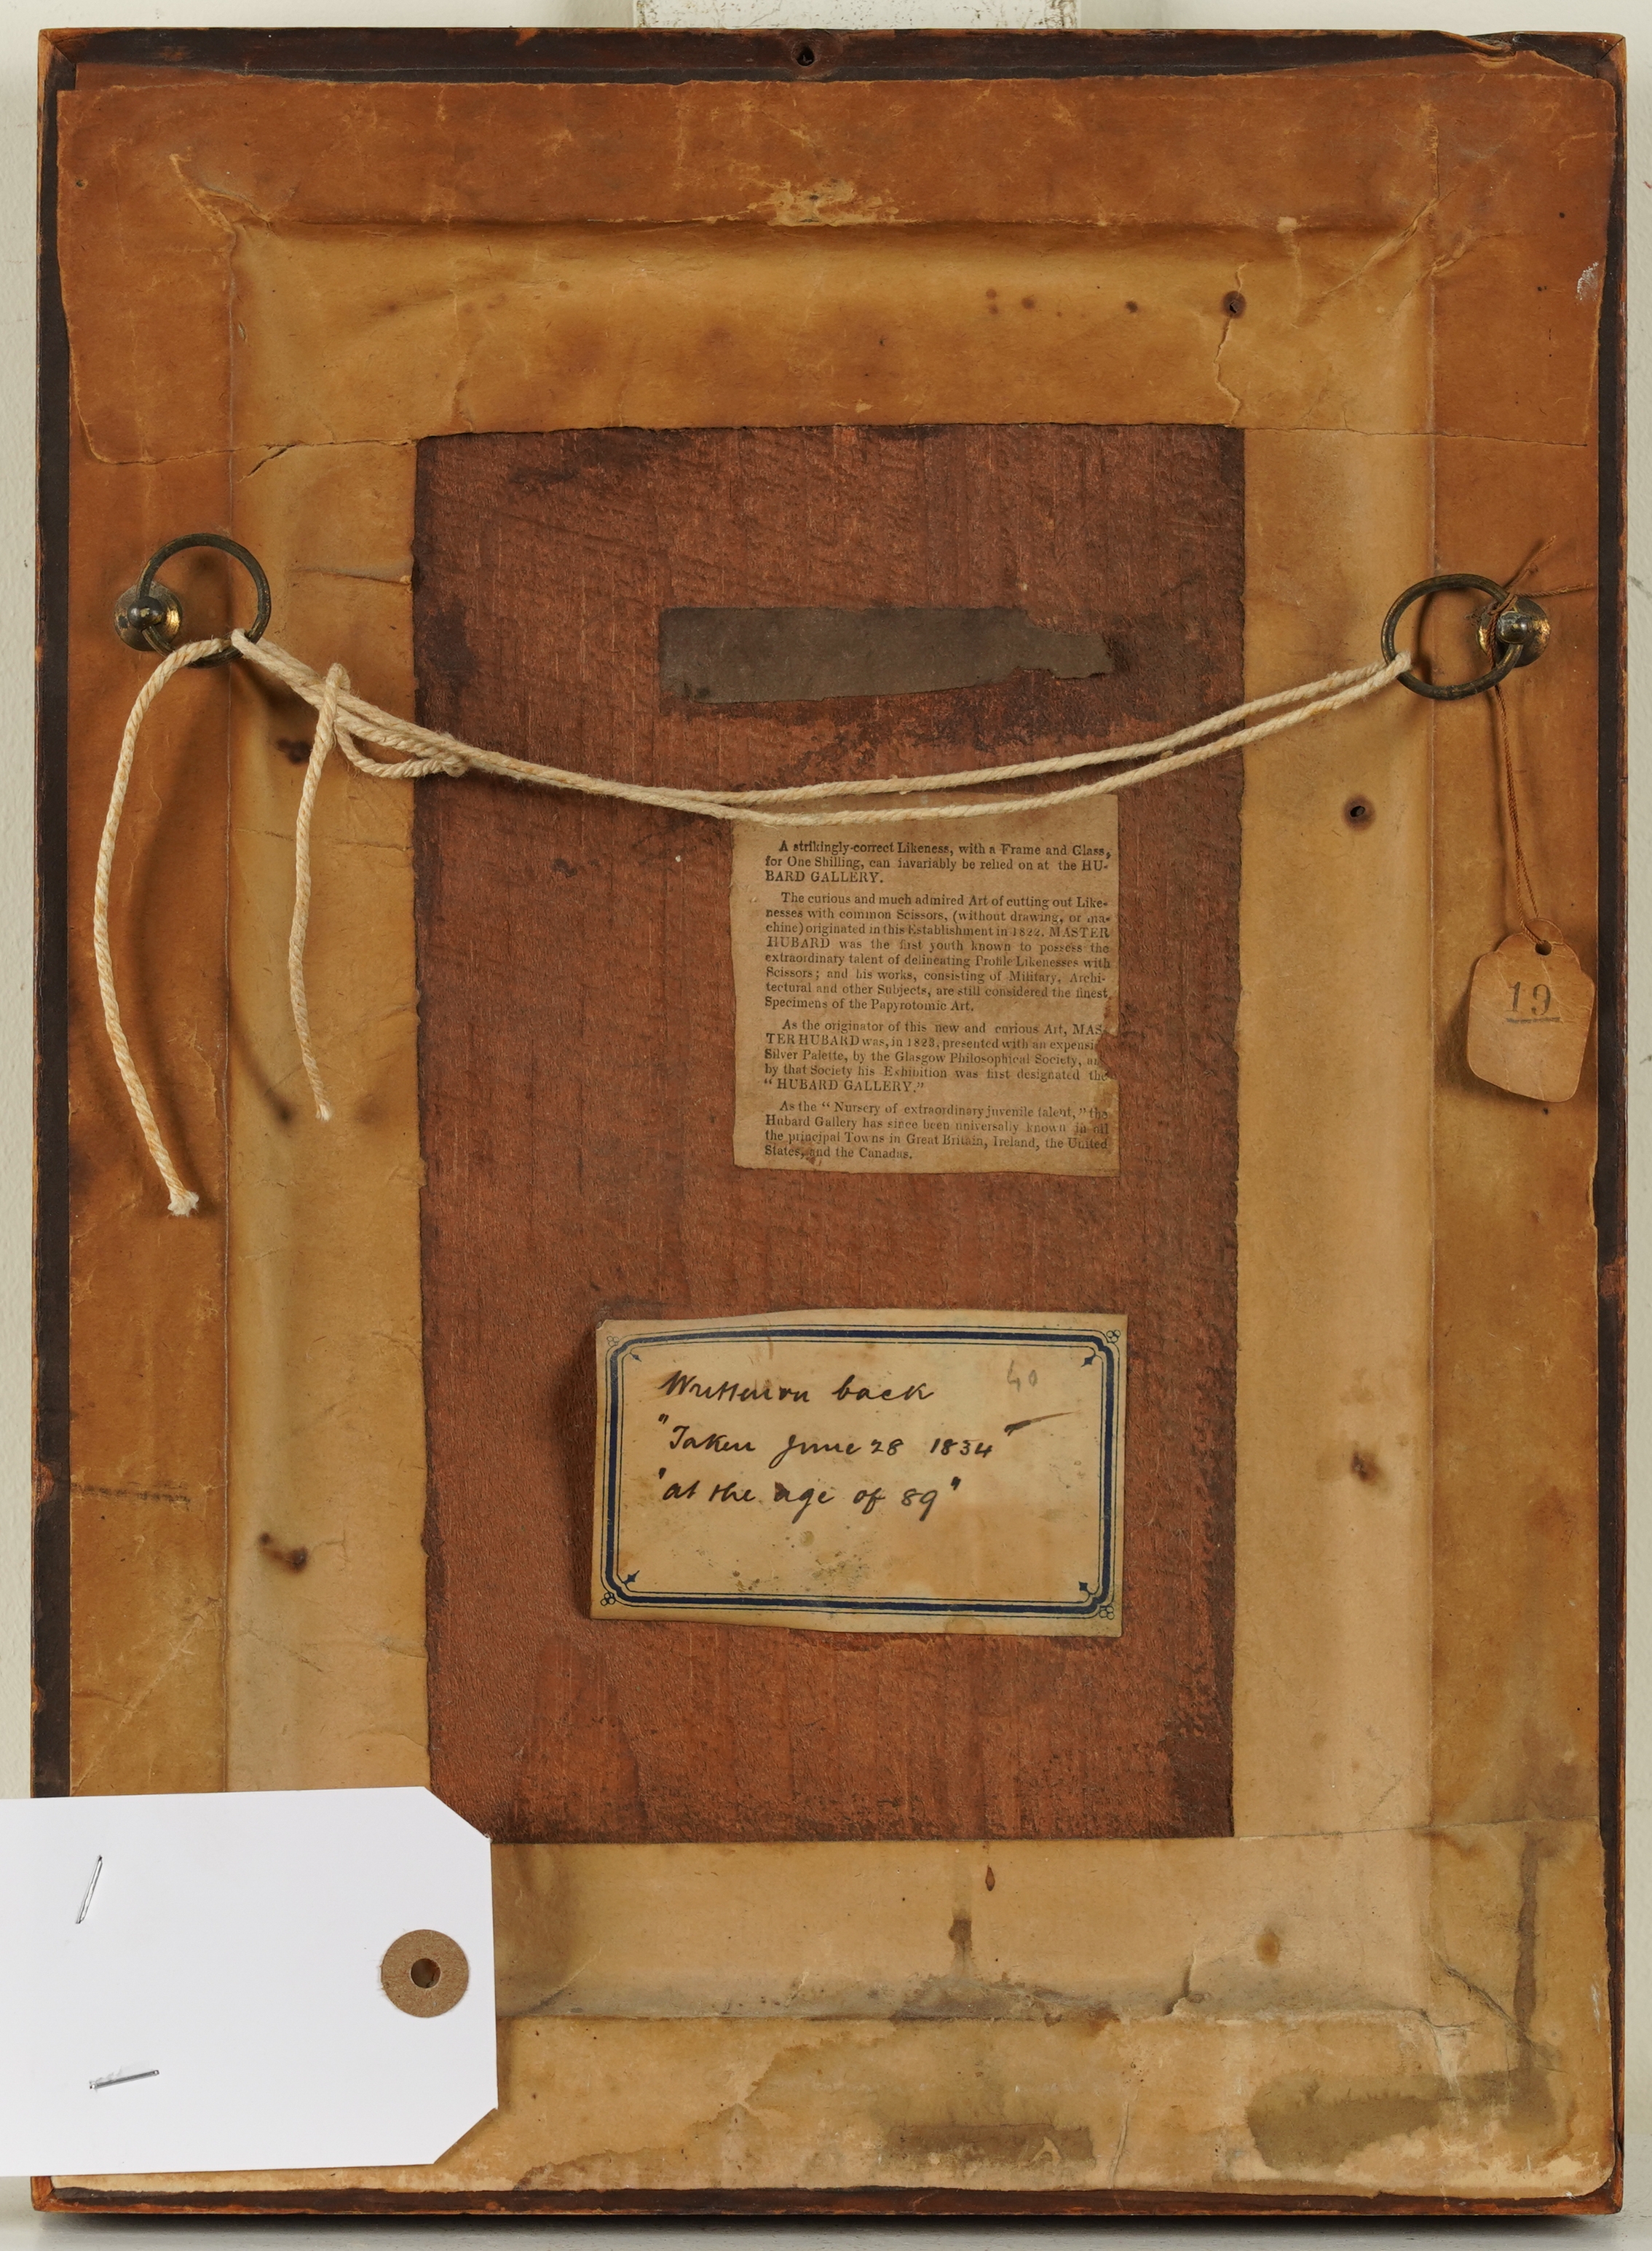 A strikingly-correct Likeness, with a Frame and Glass,
for One Shilling, can invariably be relied on at the HU-
BARD GALLERY.
The curious and much admired Art of cutting out Like-
nesses with common Scissors, (without drawing, or ma-
chine) originated in this Establishment in 1822. MASTER
HUBARD was the first youth known to possess the
extraordinary talent of delineating Profile Likenesses with
Scissors; and his works, consisting of Military, Archi-
tectural and other Subjects, are still considered the finest
Specimens of the Papyrotomic Art.
As the originator of this new and curious Art, MAS-
TER HUBARD was, in 1823, presented with an expensi
Silver Palette, by the Glasgow Philosophical Society, an
by that Society his Exhibition was first designated the
"HUBARD GALLERY."
As the "Nursery of extraordinary juvenile talent," the
Hubard Gallery has since been universally known in all
the principal Towns in Great Britain, Ireland, the United
States, and the Canadas.
19
40
Written on back
"Taken June 28 1834"
"at the age of 89"